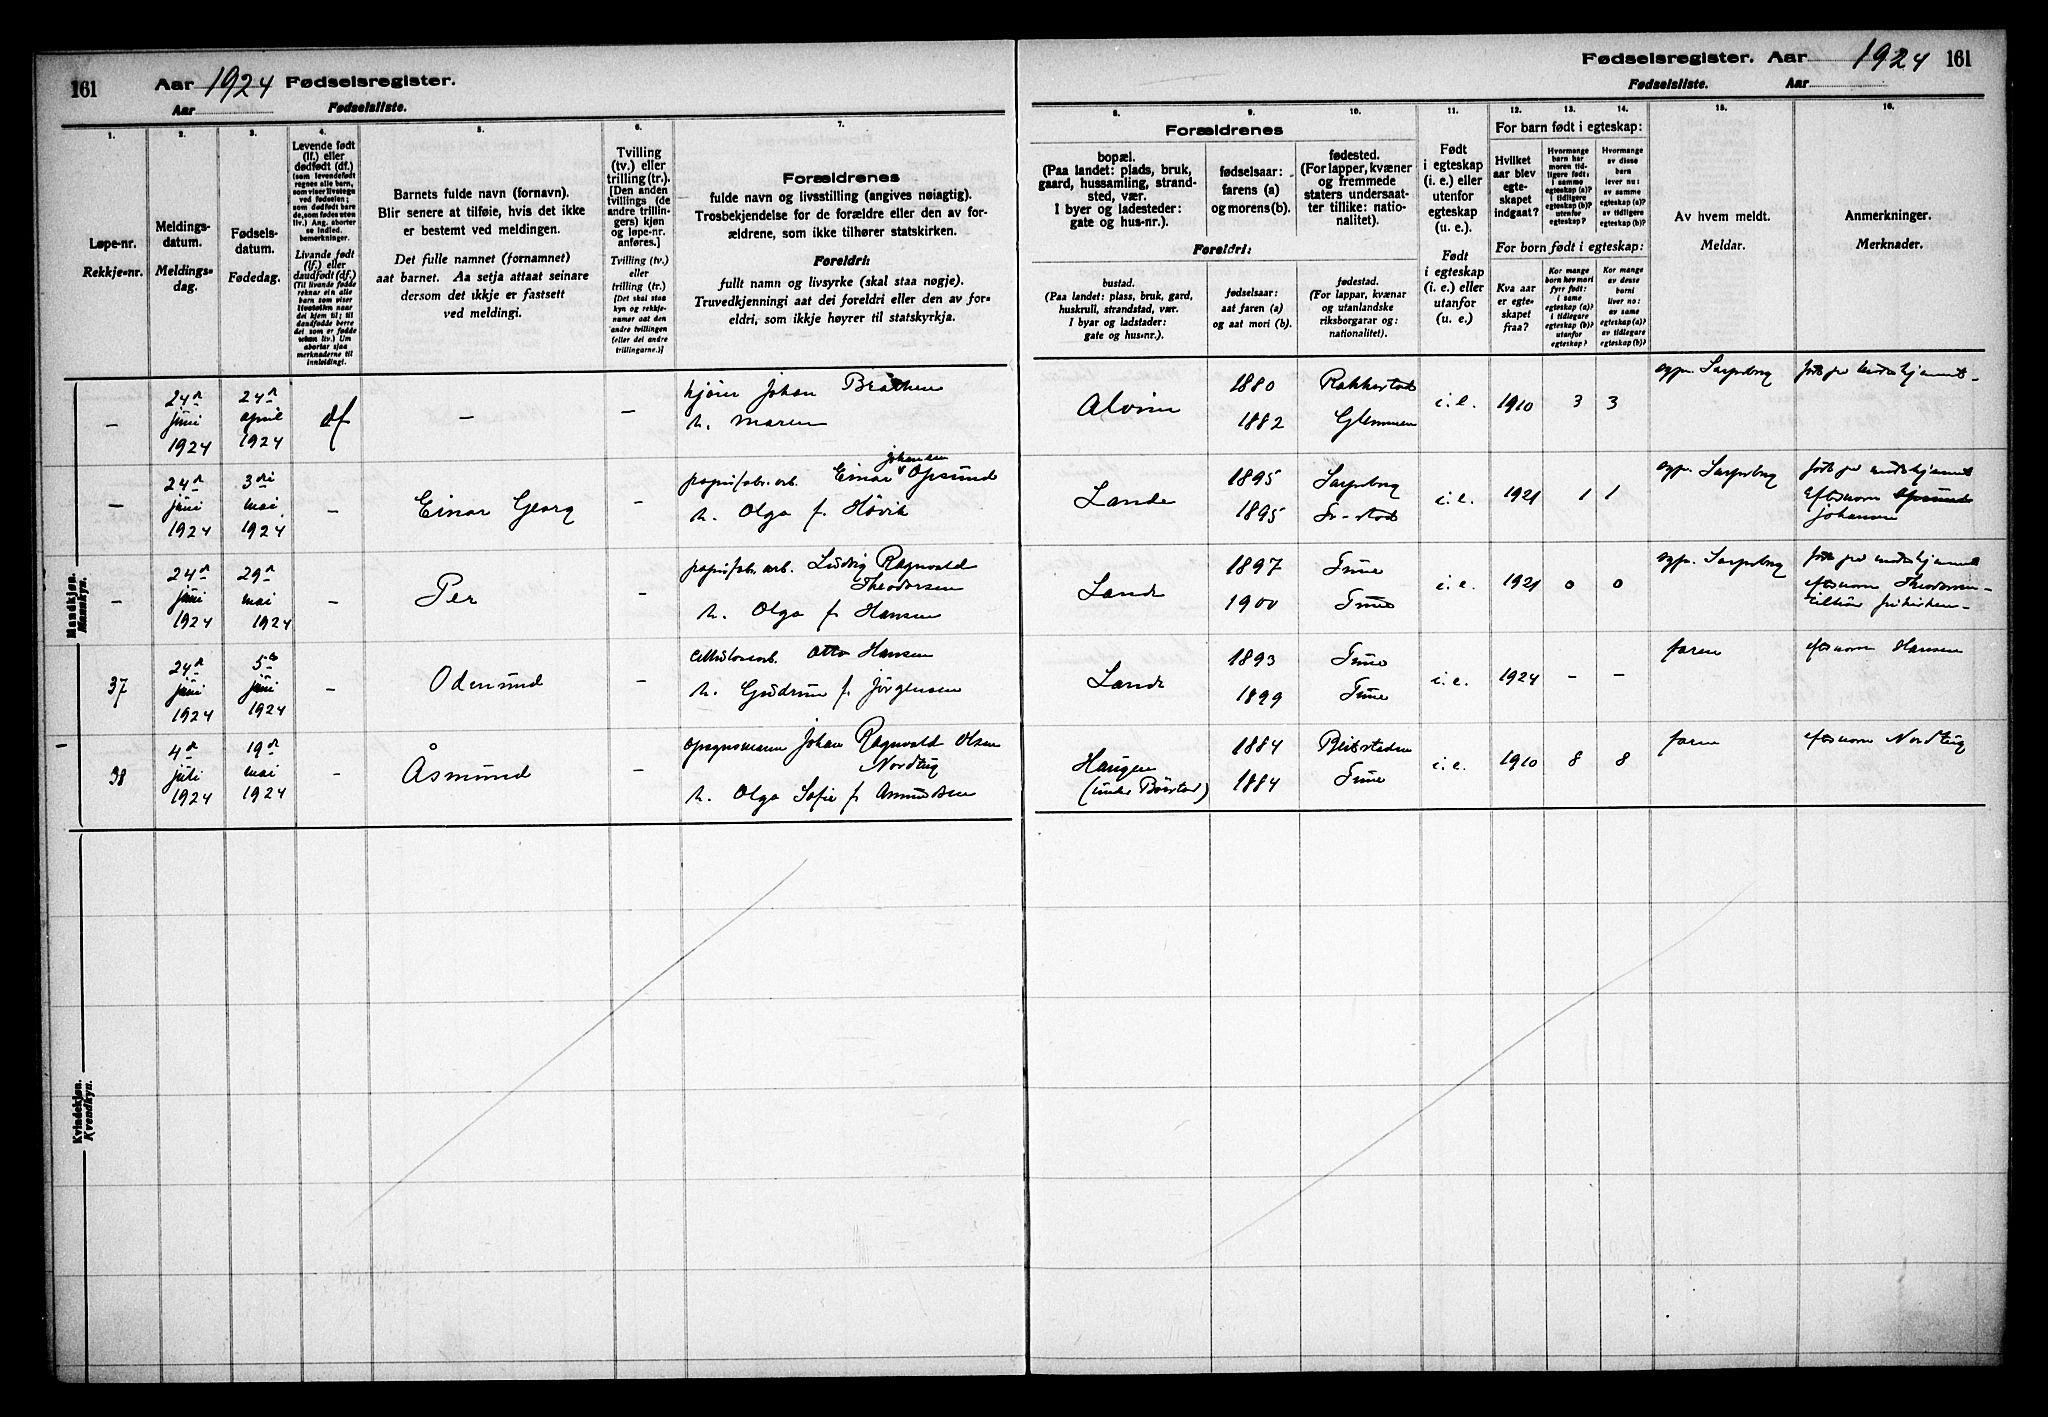 161
Aar 1924 Fødselsregister.
Aar Fødselsliste.
1.
2.
3.
4.
5.
6.
7.
Løpe-nr.
Rekkje-nr.
Meldings-
datum.
Meldings-
dag.
Fødsels-
datum.
Fødedag.
Levende født
(lf.) eller
dødfødt (df.)
Livande født
(lf.) eller
daudfødt (df.)
Barnets fulde navn (fornavn).
Blir senere at tilføie, hvis det ikke
er bestemt ved meldingen.
Det fulle namnet (fornamnet)
aat barnet. Aa setja attaat seinare
dersom det ikkje er fastsett
ved meldingi.
Tvilling
(tv.) eller
trilling (tr.).
[Den anden
tvillings (de
andre trillin-
gers) kjøn
og løpe-nr.
anføres.]
Tvilling (tv.)
eller
trilling (tr.)
[Det skal staa
kyn og rekkje-
numer aat den
andre tvillingen
(eller dei andre
trillingarne.)]
Forældrenes
fulde navn og livsstilling (angives nøiagtig).
Trosbekjendelse for de forældre eller den av for-
ældrene, som ikke tilhører statskirken.
Foreldri:
fullt namn og livsyrke (skal staa nøgje).
Truvedkjenningi aat dei foreldri eller den av for-
eldri, som ikkje høyrer til statskyrkja.
Mandkjøn.
Mannkyn.
–
24de
juni
1924
24de
april
1924
df
–
–
Johan Braathen
h. Maren
–
24de
juni
1924
3die
mai
1924
–
Einar Georg
–
Johansen
papirfabr. arb. Einar Opsund
h. Olga f. Høvik
–
24de
juni
1924
29de
mai
1924
–
Per
–
papirfabr. arb. Ludvig Ragnvald
Theodorsen
h. Olga f. Hansen
37
24de
juni
1924
5te
juni
1924
–
Odmund
–
cellulosearb. Otto Hansen
h. Gudrun f. Jørgensen
38
4de
juli
1924
19de
mai
1924
–
Åsmund
–
opsynsmann Johan Ragnvald Olsen
Nordtug
h. Olga Sofie f. Amundsen
Kvindekjøn.
Kvendkyn.
Fødselsregister. Aar 1924 161
Fødselsliste. Aar
8.
9.
10.
11.
12.
13.
14.
15.
16.
Forældrenes
bopæl.
(Paa landet: plads, bruk,
gaard, hussamling, strand-
sted, vær.
I byer og ladesteder:
gate og hus-nr.).
fødselsaar:
farens (a)
og morens (b).
fødested.
(For lapper, kvæner
og fremmede
staters undersaat-
ter tillike: natio-
nalitet).
Foreldri:
bustad.
(Paa landet: plass, bruk, gard,
huskrull, strandstad, vær.
I byar og ladstader:
gate og hus-nr.).
fødselsaar:
aat faren (a)
og aat mori (b).
fødestad.
(For lappar, kvænar
og utanlandske
riksborgarar og:
nationalitet).
Født
i egteskap
(i. e.) eller
utenfor
egteskap
(u. e.).
Født
i egteskap
(i. e.) eller
utanfor
(u. e.)
For barn født i egteskap:
Hvilket
aar blev
egte-
skapet
indgaat?
Hvormange
barn har
moren tid-
ligere født:
i samme
egteskap (a)?
i tidligere
egteskap (b)?
utenfor
egteskap?
Hvormange
av disse
barn
lever nu:
av samme
egteskap (a)?
av tidligere
egteskap (b)?
For born født i egteskap:
Kva aar
er egte-
skapet
fraa?
Kor mange
barn hev mori
fyrr født:
i same
egteskap (a)?
i tidlegare
egteskap (b)?
utanfor
egteskap?
Kor mange
av desse
barni
liver no:
av same
egteskap (a)?
av tidlegare
egteskap (b)?
Av hvem meldt.
Meldar.
Anmerkninger.
Merknader.
Alvim
1880
1882
Rakkestad
Glemmen
i. e.
1910
3
3
Sarpsborg
Lande
1895
1895
Sarpsborg
Fr-stad
i. e.
1921
1
1
Sarpsborg
Efternavn Opsund
Johansen
Lande
1897
1900
Tune
Tune
i. e.
1921
0
0
Sarpsborg
efternavn Theodorsen
Lande
1893
1899
Tune
Tune
i. e.
1924
–
–
faren
efternavn Hansen
Haugen
(under Borstad)
1884
1884
Beitstaden
Tune
i. e.
1910
8
8
faren
efternavn Nordtug